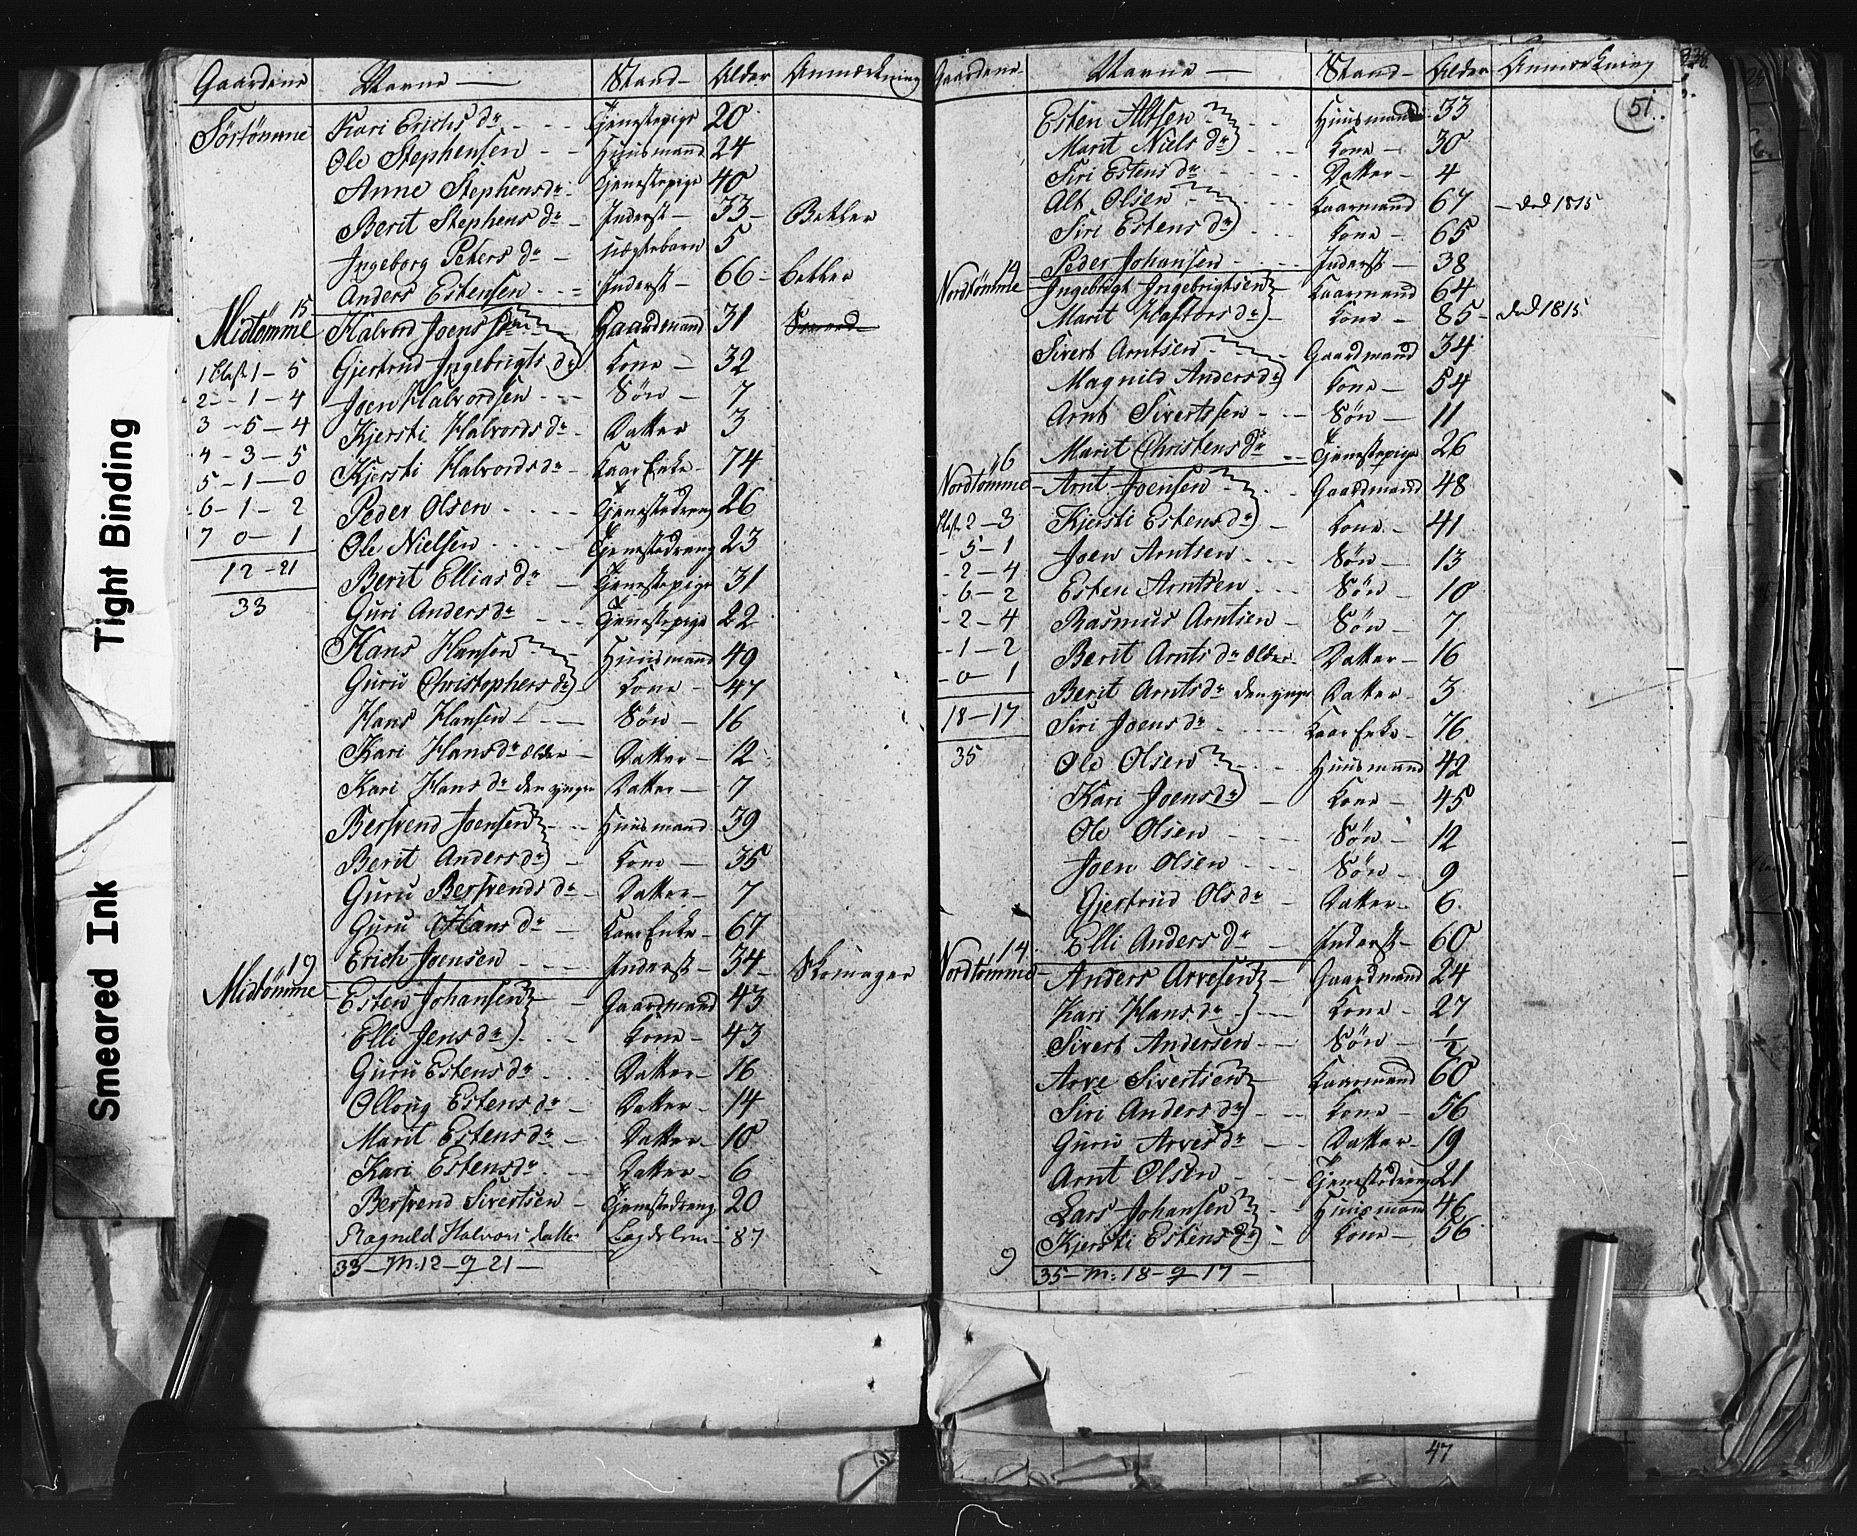 Gaardene Navne Stand Alder Anmærkning
Sörtömme Kari Erichs dr Tjenestepige 20
Ole Stephensen Huusmand 24
Anne Stephensdr Tjenestepige 40
Berit Stephens dr Inderst 33 Betler
Ingeborg Peters dr uægtebarn 5
Anders Estensen Inderst 66 betler
15
Midtömme Halvord Joens Gaardmand 31
1 Clase 1 - 5 Gjertrud Ingebrigts dr Kone 32
2 - 1 - 4 Joen Halvordsen Sön 7
3 - 5 - 4 Kjersti Halvords dr Datter 3
4 - 3 - 5 Kjersti Halvords dr Kaar Enke 74
5 - 1 - 0
6 - 1 - 2 Peder Olsen Tjenestedreng 26
7 0 - 1 Ole Nielsen Tjenestedreng 23
12 - 21 Berit Ellias dr Tjenestepige 31
33 Guri Anders dr Tjenestepige 22
Hans Hansen Huusmand 49
Guru Christophers dr Kone 47
Hans Hansen Sön 16
Kari Hans dr Older Datter 12
Kari Hans dr den yngre Datter 7
Bersvend Joensen Huusmand 39
Berit Anders dr Kone 35
Guru Bersvends dr Datter 7
Guru Hans dr Kaar Enke 67
Erich Joensen Inderst 34 Skomager
19
Midtömme Esten Johansen Gaardmand 43
Elli Jens dr Kone 43
Guru Estens dr Datter 16
Ollong Estens dr Datter 14
Marit Estens dr Datter 10
Kari Estens dr Datter 6
Bersvend Sivertsen Tjenestedreng 20
Ragnild Halvors datter Lægdslem 87
33 - M: 12 - q 21 -
Gaardene Navne Stand Alder Anmærkning
51
Esten Altsen Huusmand 33
Marit Niels dr Kone 30
Siri Estens dr Datter 4
Alt Olsen Kaarmand 67 - död 1815
Siri Estens dr Kone 65
Peder Johansen Inderst 38
14
Nordtömme Ingebrigt Ingebrigtsen Kaarmand 64
Marit Haftors dr Kone 85 - död 1815
Sivert Arntsen Gaardmand 34
Magnild Anders dr Kone 54
Arnt Sivertssen Sön 11
Marit Christens dr Tjenestepige 26
16
Nordtömme Arnt Joensen Gaardmand 48
Clase 2 - 3 Kjersti Estens dr Kone 41
- 5 - 1 Joen Arntsen Sön 13
- 2 - 4
- 6 - 2 Esten Arntsen Sön 10
- 2 - 4 Rasmus Arntsen Sön 7
- 1 - 2 Berit Arnts dr Older Datter 16
- 0 - 1 Berit Arnts dr den yngre Datter 3
18 - 17 Siri Joens dr Kaar Enke 76
35 Ole Olsen Huusmand 42
Kari Joens dr Kone 45
Ole Olsen Sön 12
Joen Olsen Sön 9
Gjertrud Ols dr Datter 6
Elli Anders dr Inderst 60
14
Nordtömme Anders Arvesen Gaardmand 24
Kari Hans dr Kone 27
Sivert Andersen Sön 1/2
Arve Sivertsen Kaarmand 60
Siri Anders dr Kone 56
Guru Arves dr Datter 19
Arnt Olsen Tjenestedreng 21
Lars Johansen Huusmand 46
9 Kjersti Estens dr Kone 56
35 - M: 18 - q 17 -
47
Tight Binding
Smeared Ink